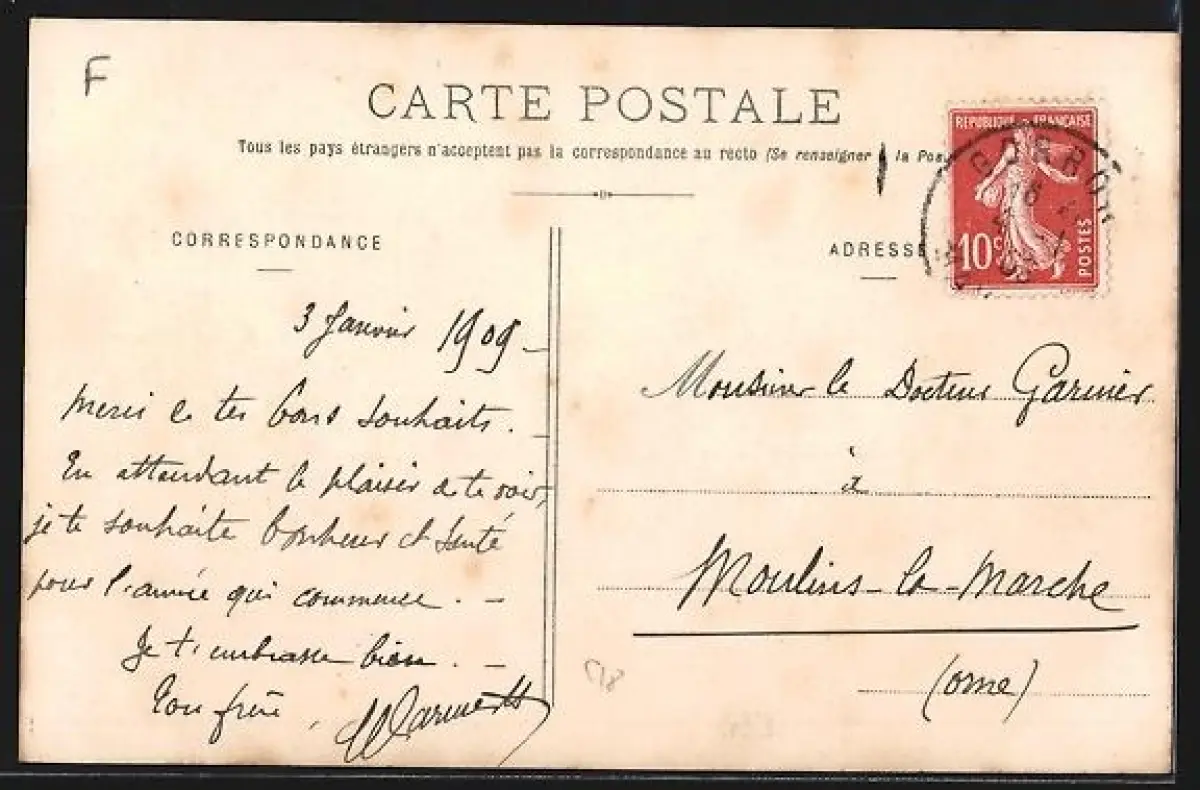 F
CARTE POSTALE
Tous les pays étrangers n'acceptent pas la correspondance au recto (Se renseigner à la Pos
CORRESPONDANCE
ADRESSE
REPUBLIQUE FRANÇAISE
10c
POSTES
GORRON
3 Janvier 1909 -
Merci de tes bons souhaits. -
En attendant le plaisir de te voir,
je te souhaite bonheur et santé
pour l'année qui commence. -
Je t'embrasse bien. -
Ton frère,
Monsieur le Docteur Garnier
à
Moulins-la-Marche
(Orne)